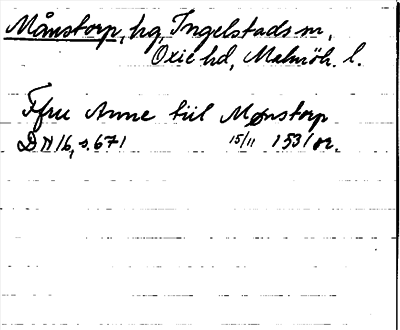 Månstorp, hg, Ingelstads sn,
Oxie hd, Malmöh. l.
Ffru Anne till Mønstorp
DN 16, s. 671 15/11 1531 or.